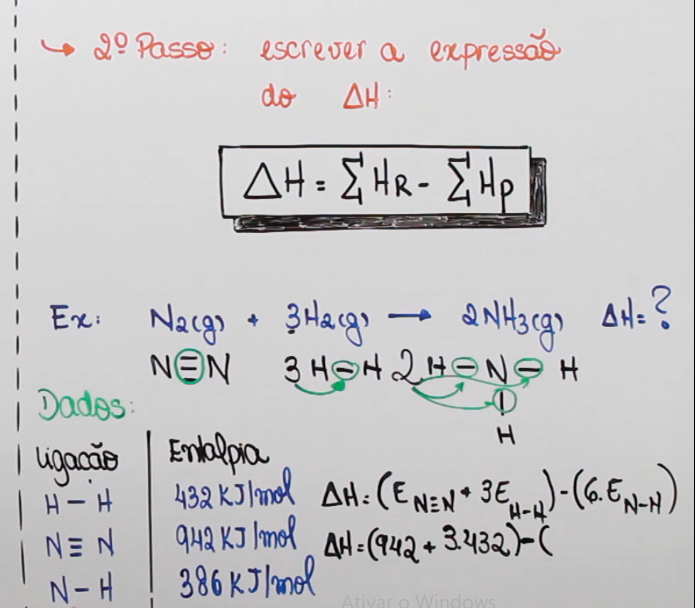 ↳ 2º Passo: escrever a expressão
do ΔH:
ΔH = ∑HR - ∑Hp
Ex: N2(g) + 3H2(g) → 2NH3(g) ΔH=?
N≡N 3 H-H 2 H-N-H
H
Dados:
Ligação | Entalpia
H-H | 432 KJ/mol
N≡N | 942 KJ/mol
N-H | 386 KJ/mol
ΔH=(E N≡N + 3E H-H)-(6.E N-H)
ΔH=(942 + 3.432)-(
Ativar o Windows